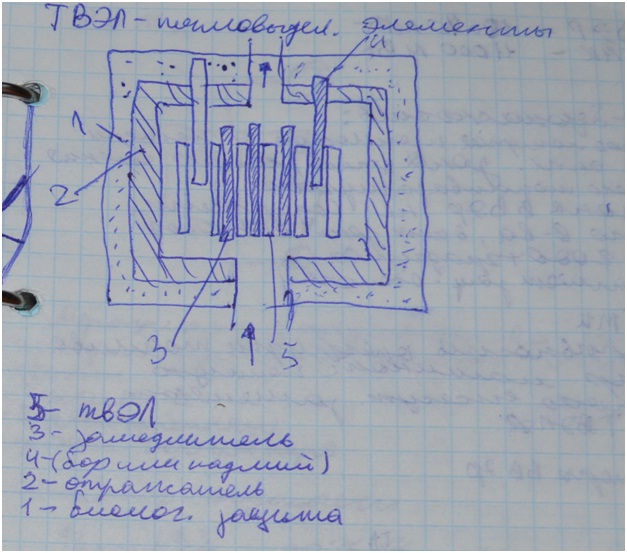 ТВЭЛ - тепловыдел. элементы
4
1
2
3
5
5 - твЭЛ
3 - замедлитель
4 - (бор или кадмий)
2 - отражатель
1 - биолог. защита